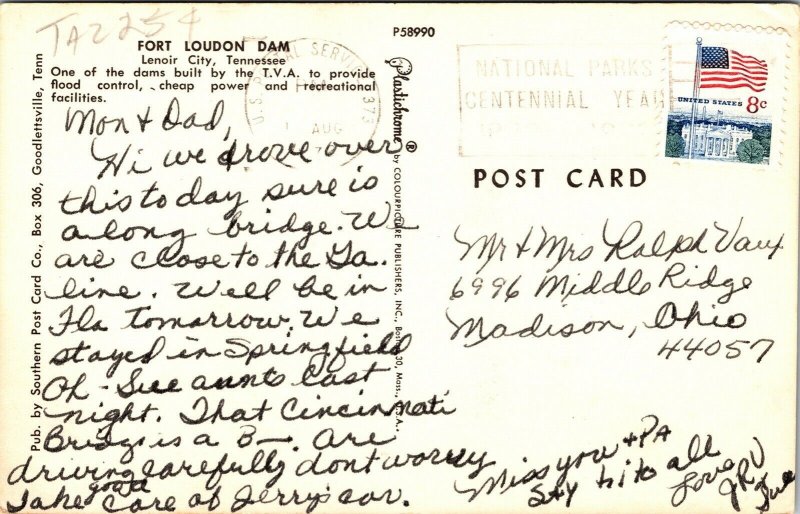 TA2254
FORT LOUDON DAM
Lenoir City, Tennessee
One of the dams built by the T.V.A. to provide
flood control, cheap power and recreational
facilities.
P58990
Pub. by Southern Post Card Co., Box 306, Goodlettsville, Tenn
Plastichrome ® by COLOURPICTURE PUBLISHERS, INC., Boston 30, Mass., U.S.A.
U.S. POSTAL SERVICE 373
AUG
NATIONAL PARKS
CENTENNIAL YEAR
UNITED STATES 8c
POST CARD
Mom & Dad,
Hi we drove over
this today sure is
a long bridge. We
are close to the Ga.
line. Well be in
Fla tomorrow. We
stayed in Springfield
Oh - Sue aunts last
night. That Cincinnati
Bridge is a B—. Are
driving carefully dont worry
Take good care of Jerry's car.
Miss you & PA
Say hi to all
Love
JRV
Sue
Mr & Mrs Ralph Vaux
6996 Middle Ridge
Madison, Ohio
44057